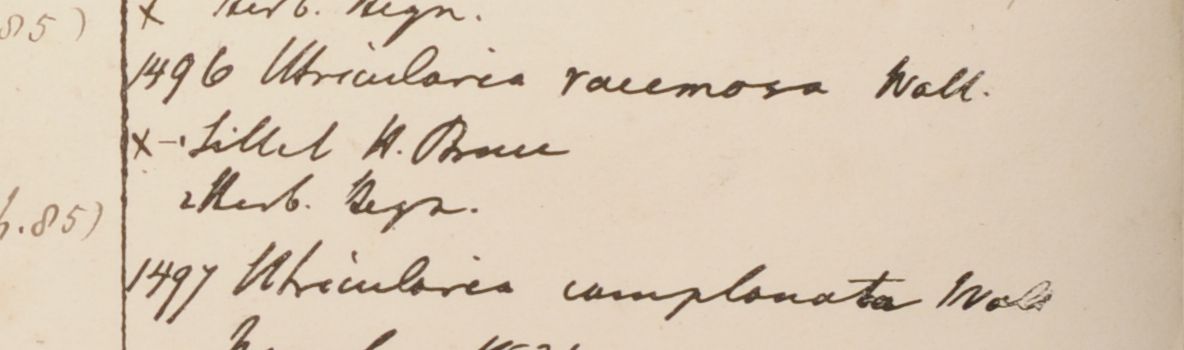 85)
x Herb. Heyn.
1496 Utricularia racemosa Wall.
x-1 Sillet H. Bruce
2 Herb. Heyn.
h.85)
1497 Utricularia complanata Wall